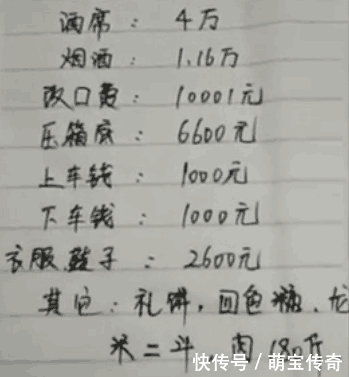 酒席：4万
烟酒：1.16万
改口费：10001元
压箱底：6600元
上车钱：1000元
下车钱：1000元
衣服鞋子：2600元
其它：礼饼，回色糖，龙
米二斗，肉180斤
快传号／萌宝传奇